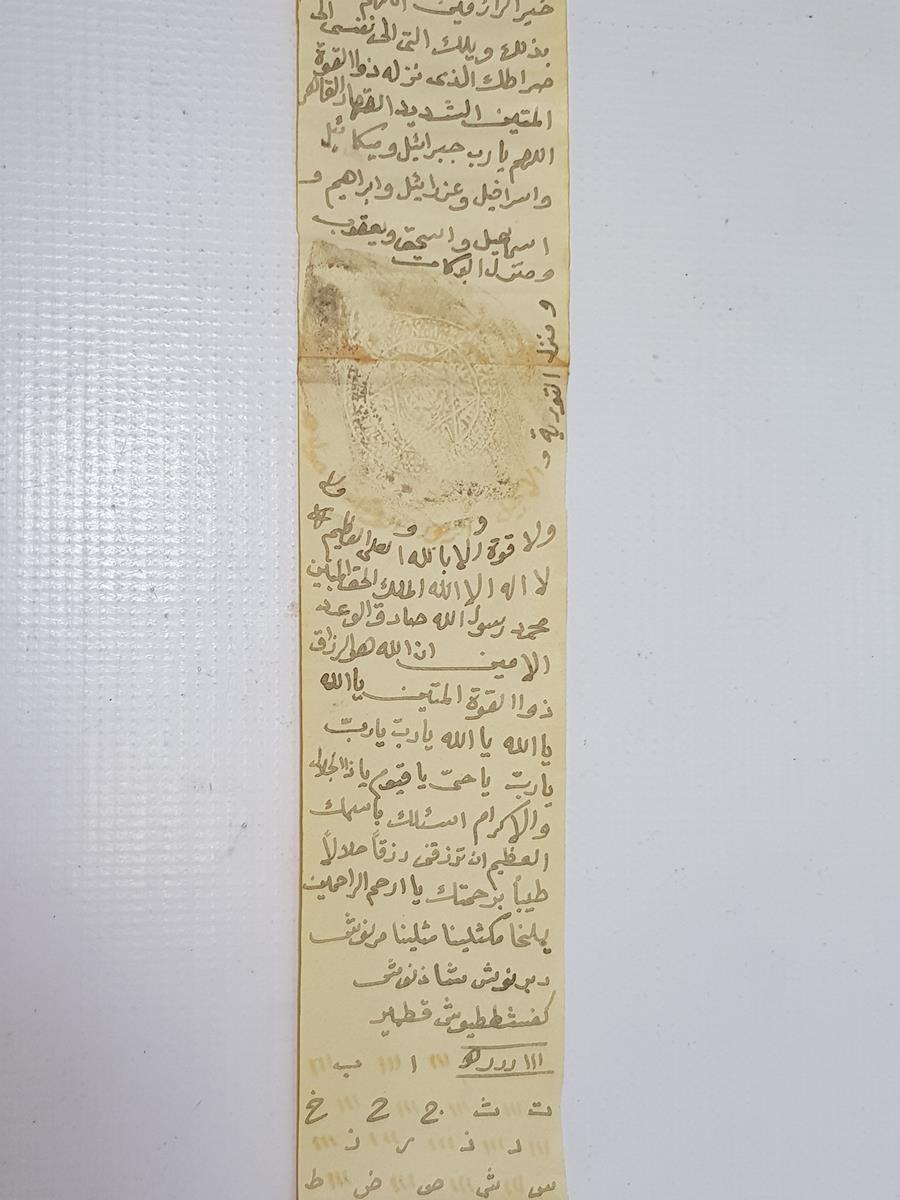 خير الرازقين اللهم
صراطك الذى نزله ذوا القوة
المتين الشديد القهار القاهر
اللهم يا رب جبرائيل وميكائيل
واسرافيل وعزرائيل وابراهيم و
اسمعيل واسحق ويعقوب
ومنزل البركات
ومنزل التورية و
ولا قوة الا بالله العلى العظيم
لا اله الا الله الملك الحق المبين
محمد رسول الله صادق الوعد
الامين ان الله هو الرزاق
ذوا القوة المتين يا الله
يا الله يا الله يا ربّ يا ربّ
يا ربّ يا حىّ يا قيوم يا ذا الجلال
والاكرام اسئلك باسمك
العظيم ان ترزقنى رزقاً حلالاً
طيباً برحمتك يا ارحم الراحمين
يمليخا مكثلينا مثلينا مرنوش
دبرنوش شاذنوش
كفشططيوش قطمير
ا ب
ت ث ج ح خ
د ذ ر ز
س ش ص ض ط